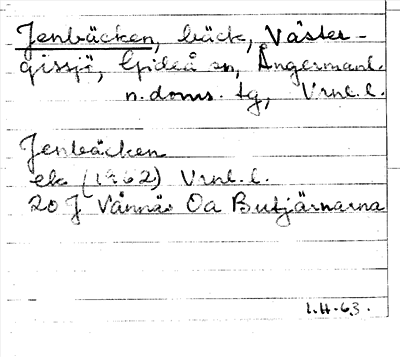 Jenbäcken, bäck, Väster-
gissjö, Gideå sn, Ångermanl.
n. doms. tg, Vrnl. l.
Jenbäcken
ek (1962) Vrnl. l.
20 J Vännäs Oa Butjärnarna
1.4.63.